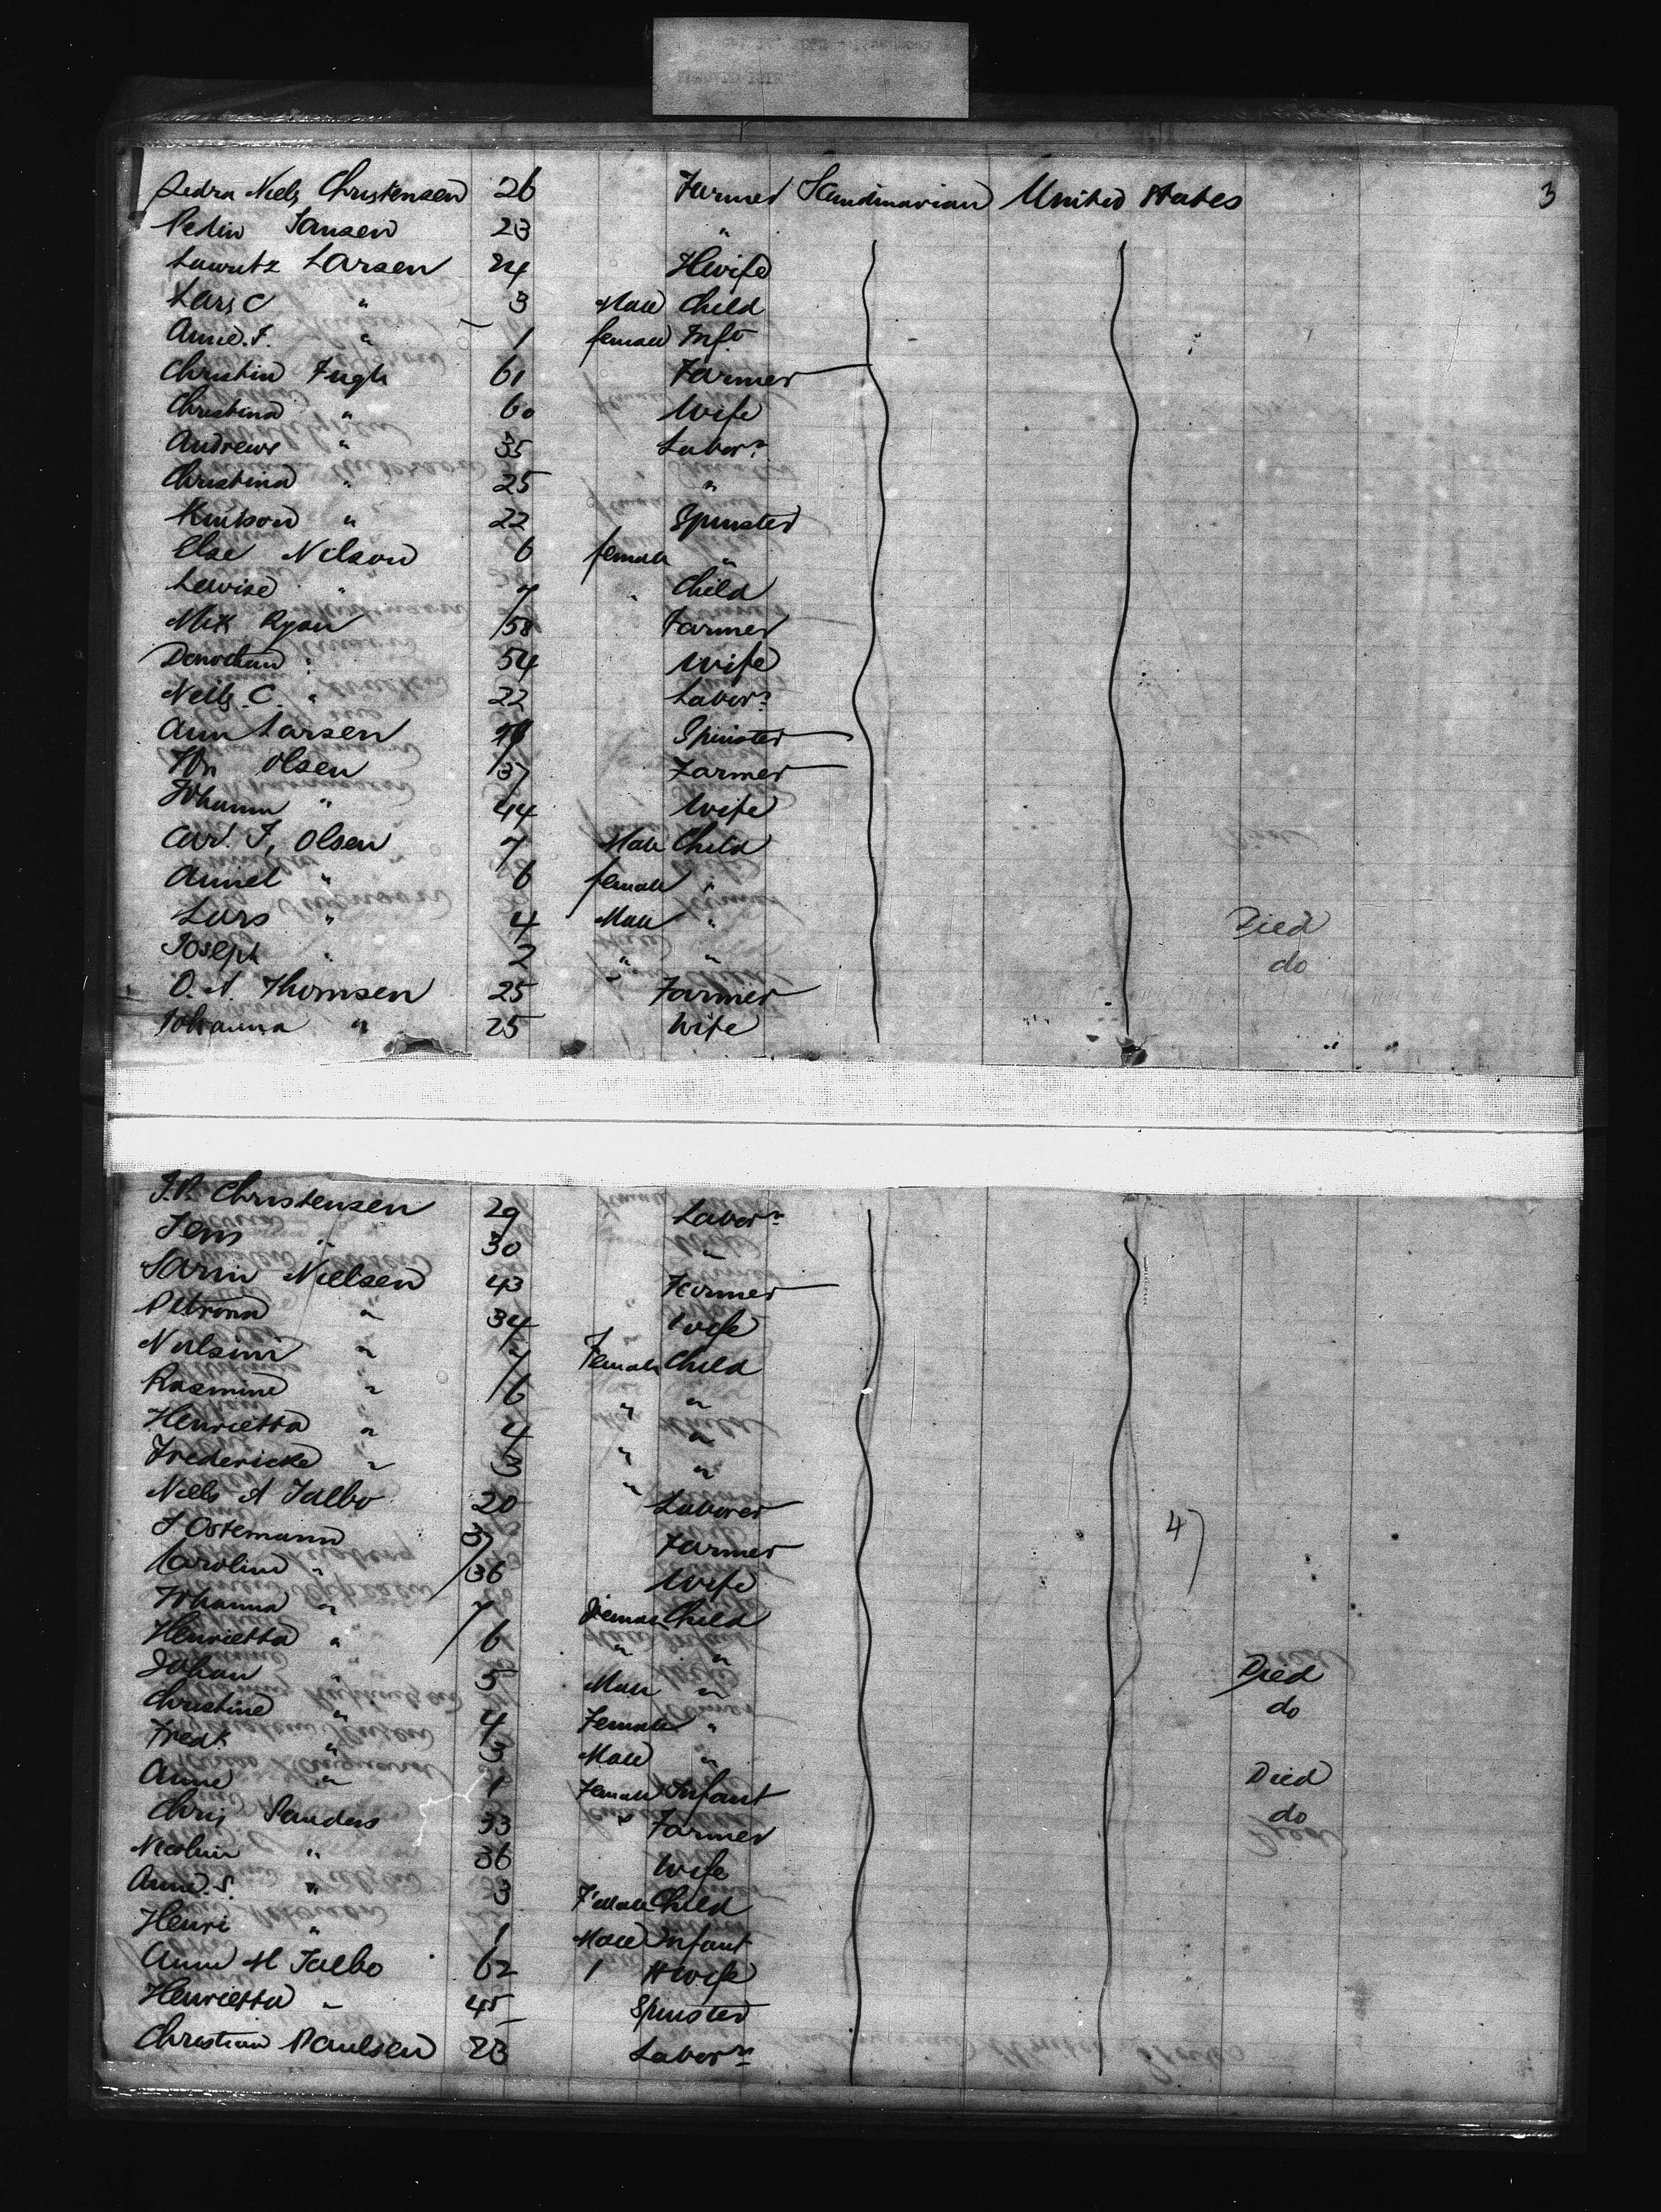 Pedra Niels Christensen 26 Farmer Scandinavian United States 3
Peder Jansen 23 "
Lauritz Larsen 24 HWife
Lars C " 3 Male Child
Anne. J. " 1 female Inft
Christin Fugh 61 Farmer
Christina " 60 Wife
Andrews " 35 Labor.
Christina " 25 "
Knutson " 22 Spinster
Else Nelson 6 female "
Lewise " 7 " Child
Ryan 58 Farmer
" 54 Wife
Neils. C. " 22 Labor.
Ann Larsen Spinster
Olsen 37 Farmer
Johanna " 44 Wife
Carl. J, Olsen 7 Male Child
Annet " 6 female "
Lars " 4 Male " Died
Joseph " 2 " " do
O. A. Thomsen 25 Farmer
Johanna " 25 Wife
J.P. Christensen 29 Labor.
Jens " 30 "
Nielsen 43 Farmer
Petrona " 34 Wife
Nielsini " 7 Female Child
Rasmine " 6 " "
Henrietta " 4 " "
Fredericke " 3 " "
Niels A Jalbo 20 " Laborer
J Ostemann 37 Farmer 47
Carolina " 36 Wife
Johanna " 7 Female Child
Henrietta " 6 " "
Johan " 5 Male " Died
Christine " 4 Female " do
Fredk. " 3 Male "
Anne " 1 Female Infant Died
Chris Sanders 33 " Farmer do
Nicolin " 36 Wife
Anne. S. " 3 F'male Child
Henri " 1 Male Infant
Anne M Jalbo 62 1 HWife
Henrietta " 45 Spinster
Christian Paulsen 23 Labor.